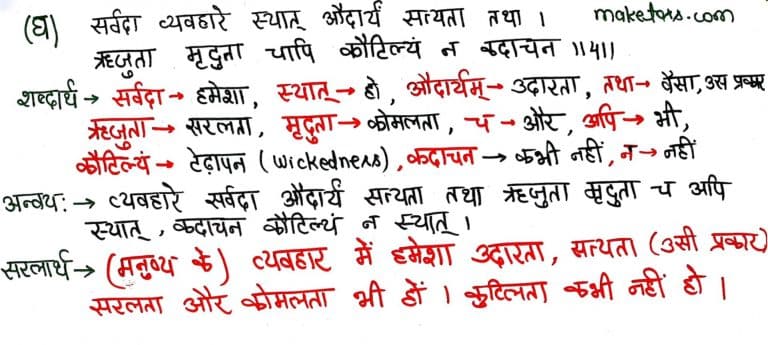 (घ) सर्वदा व्यवहारे स्यात् औदार्यं सत्यता तथा । maketoss.com
ऋजुता मृदुता चापि कौटिल्यं न कदाचन ॥4॥
शब्दार्थ → सर्वदा → हमेशा, स्यात् → हो, औदार्यम् → उदारता, तथा → वैसा, उस प्रकार
ऋजुता → सरलता, मृदुता → कोमलता, च → और, अपि → भी,
कौटिल्यं → टेढ़ापन (wickedness), कदाचन → कभी नहीं, न → नहीं
अन्वयः → व्यवहारे सर्वदा औदार्यं सत्यता तथा ऋजुता मृदुता च अपि
स्यात्, कदाचन कौटिल्यं न स्यात् ।
सरलार्थ → (मनुष्य के) व्यवहार में हमेशा उदारता, सत्यता (उसी प्रकार)
सरलता और कोमलता भी हों । कुटिलता कभी नहीं हो ।